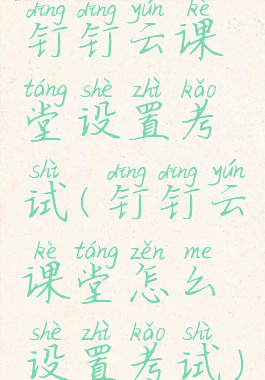 dīng dīng yún kè
钉钉云课
táng shè zhì kǎo
堂设置考
shì dīng dīng yún
试(钉钉云
kè táng zěn me
课堂怎么
shè zhì kǎo shì
设置考试)